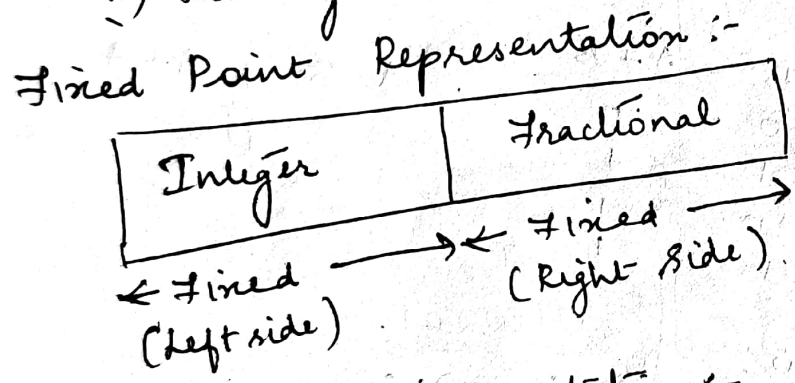 Fixed Point Representation :-
Integer
Fractional
← Fixed → ← Fixed →
(Left side) (Right Side)